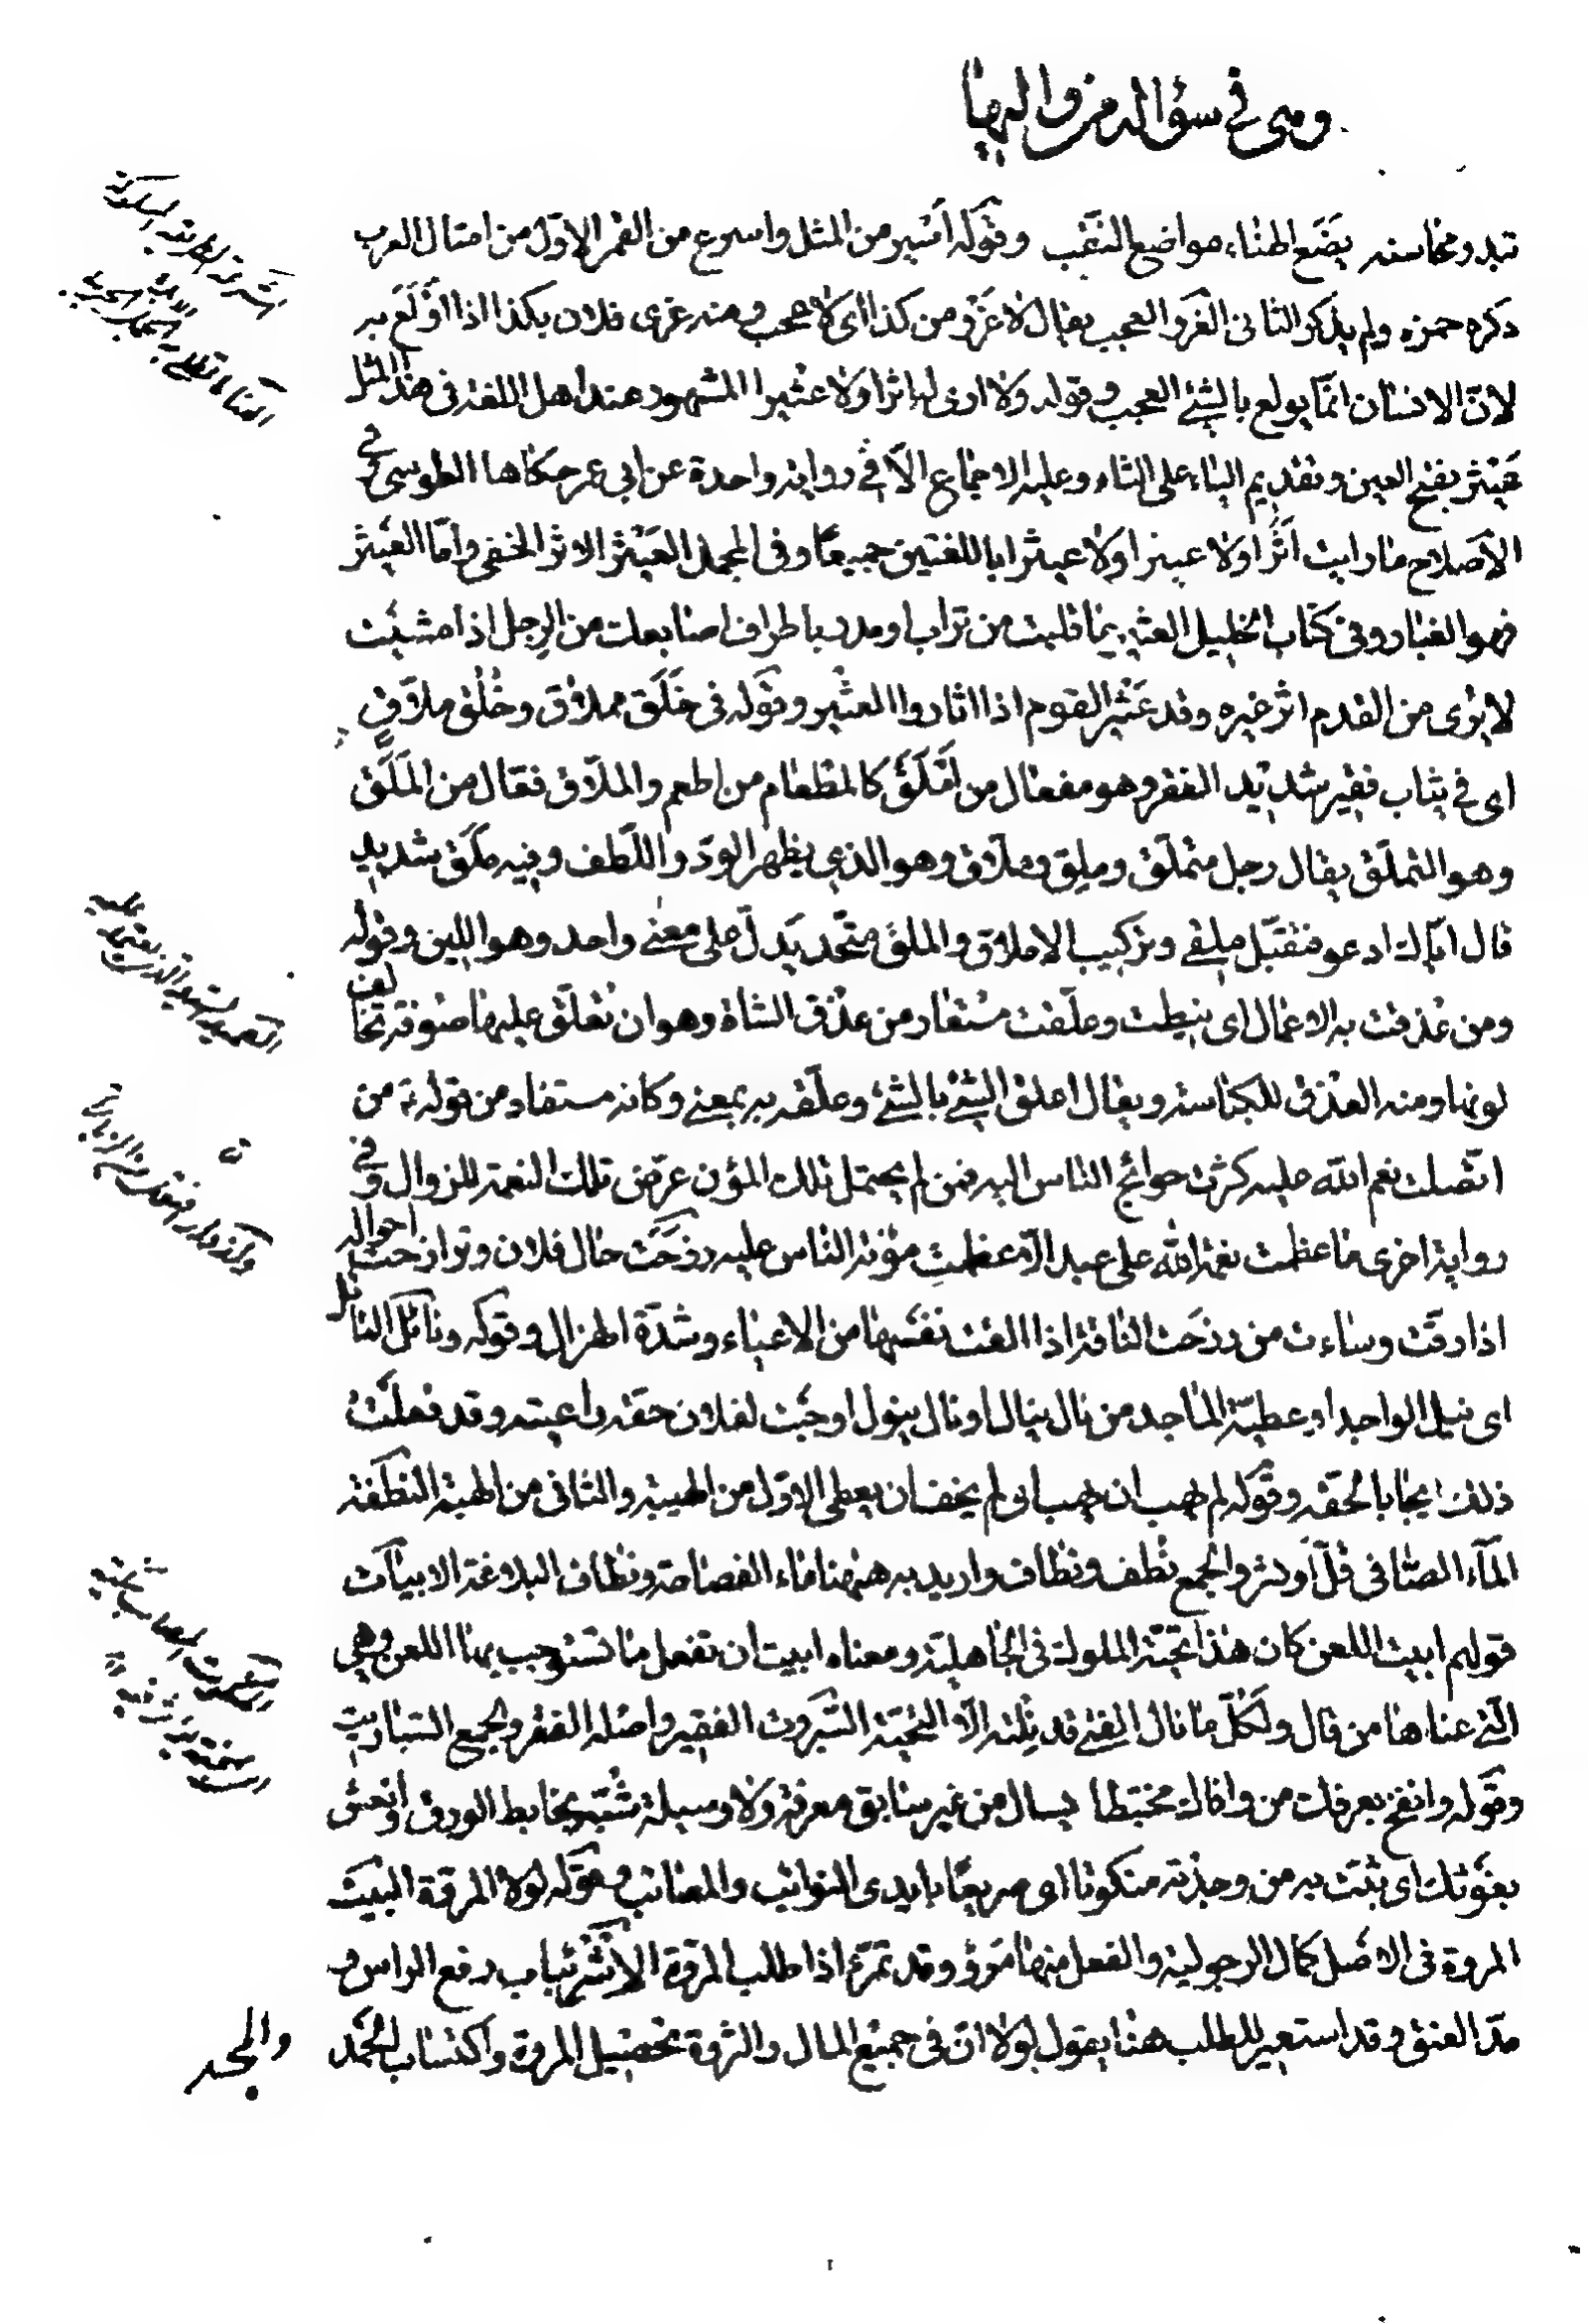 ومى فى سؤاله من واليها
تبدو محاسنه يضع الهناء مواضع النقب وقوله أسير من المثل واسرع من القمر الاول من امثال العرب
ذكره حمزه ولم يذكر الثانى الغرو العجب يقال لا غرو من كذا اى لا عجب ومنه غرى فلان بكذا اذا اولع به
لان الانسان انما يولع بالشئ العجب وقوله ولا ارى له اثرا ولا عثيرا المشهور عند اهل اللغة فى هذا المثل
عيثر بفتح العين وتقديم الياء على الثاء وعليه الاجماع الا فى رواية واحدة عن ابى عمر حكاها الطوسى وفى
الاصلاح ما رايت اثرا ولا عيثرا ولا عثيرا باللغتين جميعا وفى المجمل العيثر الاثر الخفى واما العثير
فهو الغبار وفى كتاب الخليل العثير ما قلبت من تراب او مدر باطراف اصابعك من الرجل اذا مشيت
لا يرى من القدم اثر غيره وقد عثير القوم اذا اثاروا العثير وقوله فى خلق مملاق وخلق ملاق
اى فى ثياب فقير شديد الفقر وهو مفعال من املق كالمطعام من اطعم والملاق فعال من الملق
وهو التملق يقال رجل متملق وملق وملاق وهو الذى يظهر الود واللطف وفيه ملق شديد
قال اياك ادعو فتقبل ملقى وتركيب الاملاق والملق متحد يدل على معنى واحد وهو اللين وقوله
ومن عذقت به الاعمال اى نيطت وعلقت مستعار من عذق الشاة وهو ان تعلق عليها صوفة تخالف
لونها ومنه العذق للكباسة ويقال اعلق الشئ بالشئ وعلقه به بمعنى وكانه مستفاد من قوله من
اتصلت نعم الله عليه كثرت حوائج الناس اليه فمن لم يحتمل تلك المؤن عرض تلك النعمة للزوال وفى
رواية اخرى ما عظمت نعمة الله على عبد الا عظمت مؤنة الناس عليه رزحت حال فلان وترازحت احواله
اذا رقت وساءت من رزحت الناقة اذا القت نفسها من الاعياء وشدة الهزال وقوله ونائل النائل
اى نيل الواجد او عطية الماجد من نال ينال او نال ينول اوجبت لفلان حقه راعيته وقد فعلت
ذلك ايجابا لحقه وقوله لم يهب ان يهب اى لم يخف ان يعطى الاول من الهيبة والثانى من الهبة النطفة
الماء الصافى قل او كثر والجمع نطف ونطاف واريد به ههنا ماء الفصاحة ونطاف البلاغة الابيات
قولهم ابيت اللعن كان هذا تحية الملوك فى الجاهلية ومعناه ابيت ان تفعل ما تستوجب به اللعن وهى
التى عناها من قال ولكل ما نال الفتى قد نلته الا التحية السبروت الفقير واصله القفر والجمع السباريت
وقوله وانفح بعرفك من وافاك مختبطا يسال من غير سابق معرفة ولا وسيلة شبه بخابط الورق وانعش
بغوثك اى ثبت به من وجدته منكوبا اى صريعا بايدى النوائب والمصائب وقوله لولا المروة البيت
المروة فى الاصل كمال الرجولية والفعل منها مرؤ وقد تمرأ اذا طلب المروة الاشرئباب رفع الراس و
مد العنق وقد استعير للطلب هنا يقول لولا ان فى جميع المال والثروة تحصيل المروة واكتساب الحمد
والمجد